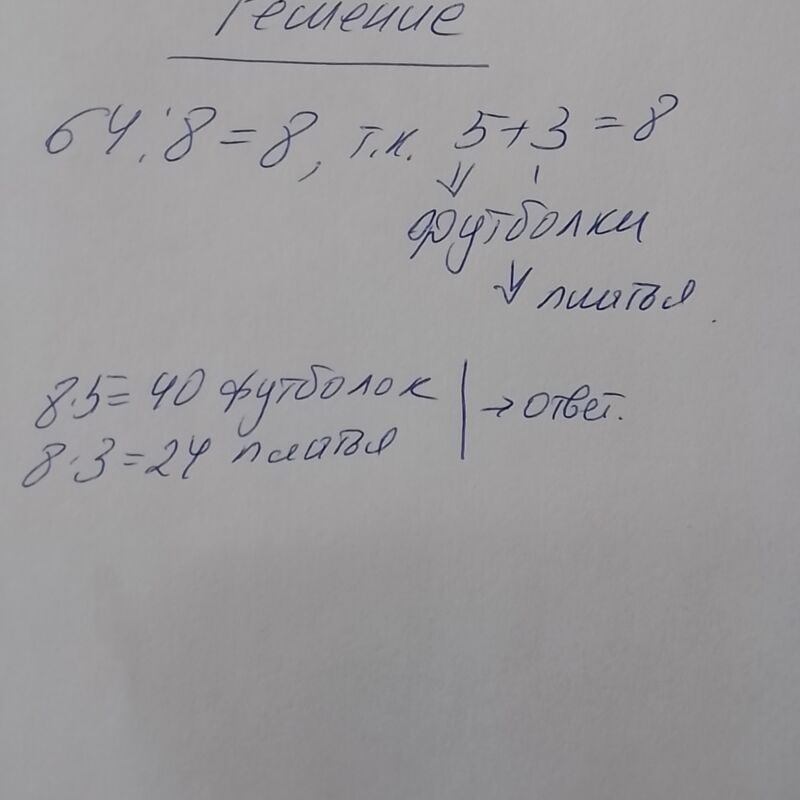 Решение
64:8=8, т.к. 5+3=8
футболки
платья.
8·5=40 футболок | → ответ.
8·3=24 платья